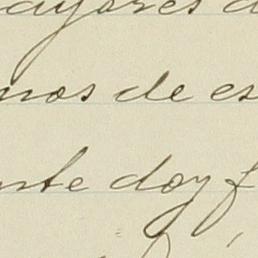 ayores d
nos de es
nte doy f